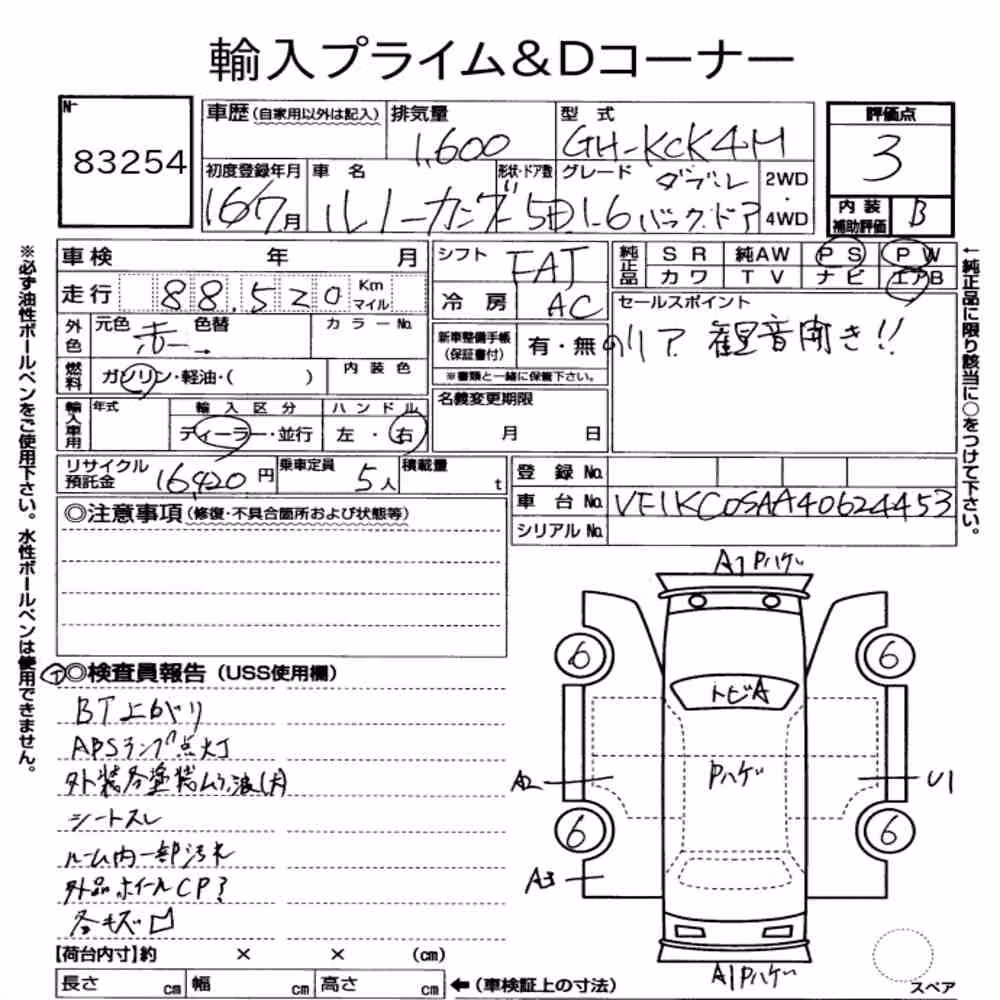 輸入プライム&Dコーナー
No 83254
車歴(自家用以外は記入) 排気量 1,600 型式 GH-KCK4M 評価点 3
初度登録年月 16 7月 車名 ルノーカングー 形状・ドア数 5D グレード 1.6 ダブルバックドア 2WD・4WD 内装補助評価 B
車検 年 月 シフト FAT 純正品 SR 純AW PS PW
走行 88,520 Km マイル 冷房 AC カワ TV ナビ エアB
外色 元色 赤 色替 カラーNo. 新車整備手帳(保証書付) 有・無 セールスポイント
リア 観音開き!!
燃料 ガソリン・軽油・( ) 内装色 ※書類と一緒に保管下さい。
輸入車用 年式 輸入区分 ハンドル 名義変更期限
ディーラー・並行 左・右 月 日
リサイクル預託金 16,420円 乗車定員 5人 積載量 t 登録No.
車台No. VF1KC0SAA40624453
シリアルNo.
◎注意事項(修復・不具合箇所および状態等)
◎検査員報告(USS使用欄)
BT上がり
ABSランプ点灯
外装各塗装ムラ
シートスレ
ルーム内一部汚れ
外品ホイールCP?
各キズ凹
【荷台内寸】約 × × (cm)
長さ cm 幅 cm 高さ cm ←(車検証上の寸法)
A1 Pハゲ
6 6
トビA
A2 Pハゲ U1
6 6
A3
A1 Pハゲ
スペア
※必ず油性ボールペンをご使用下さい。水性ボールペンは使用できません。
←純正品に限り該当に○をつけて下さい。